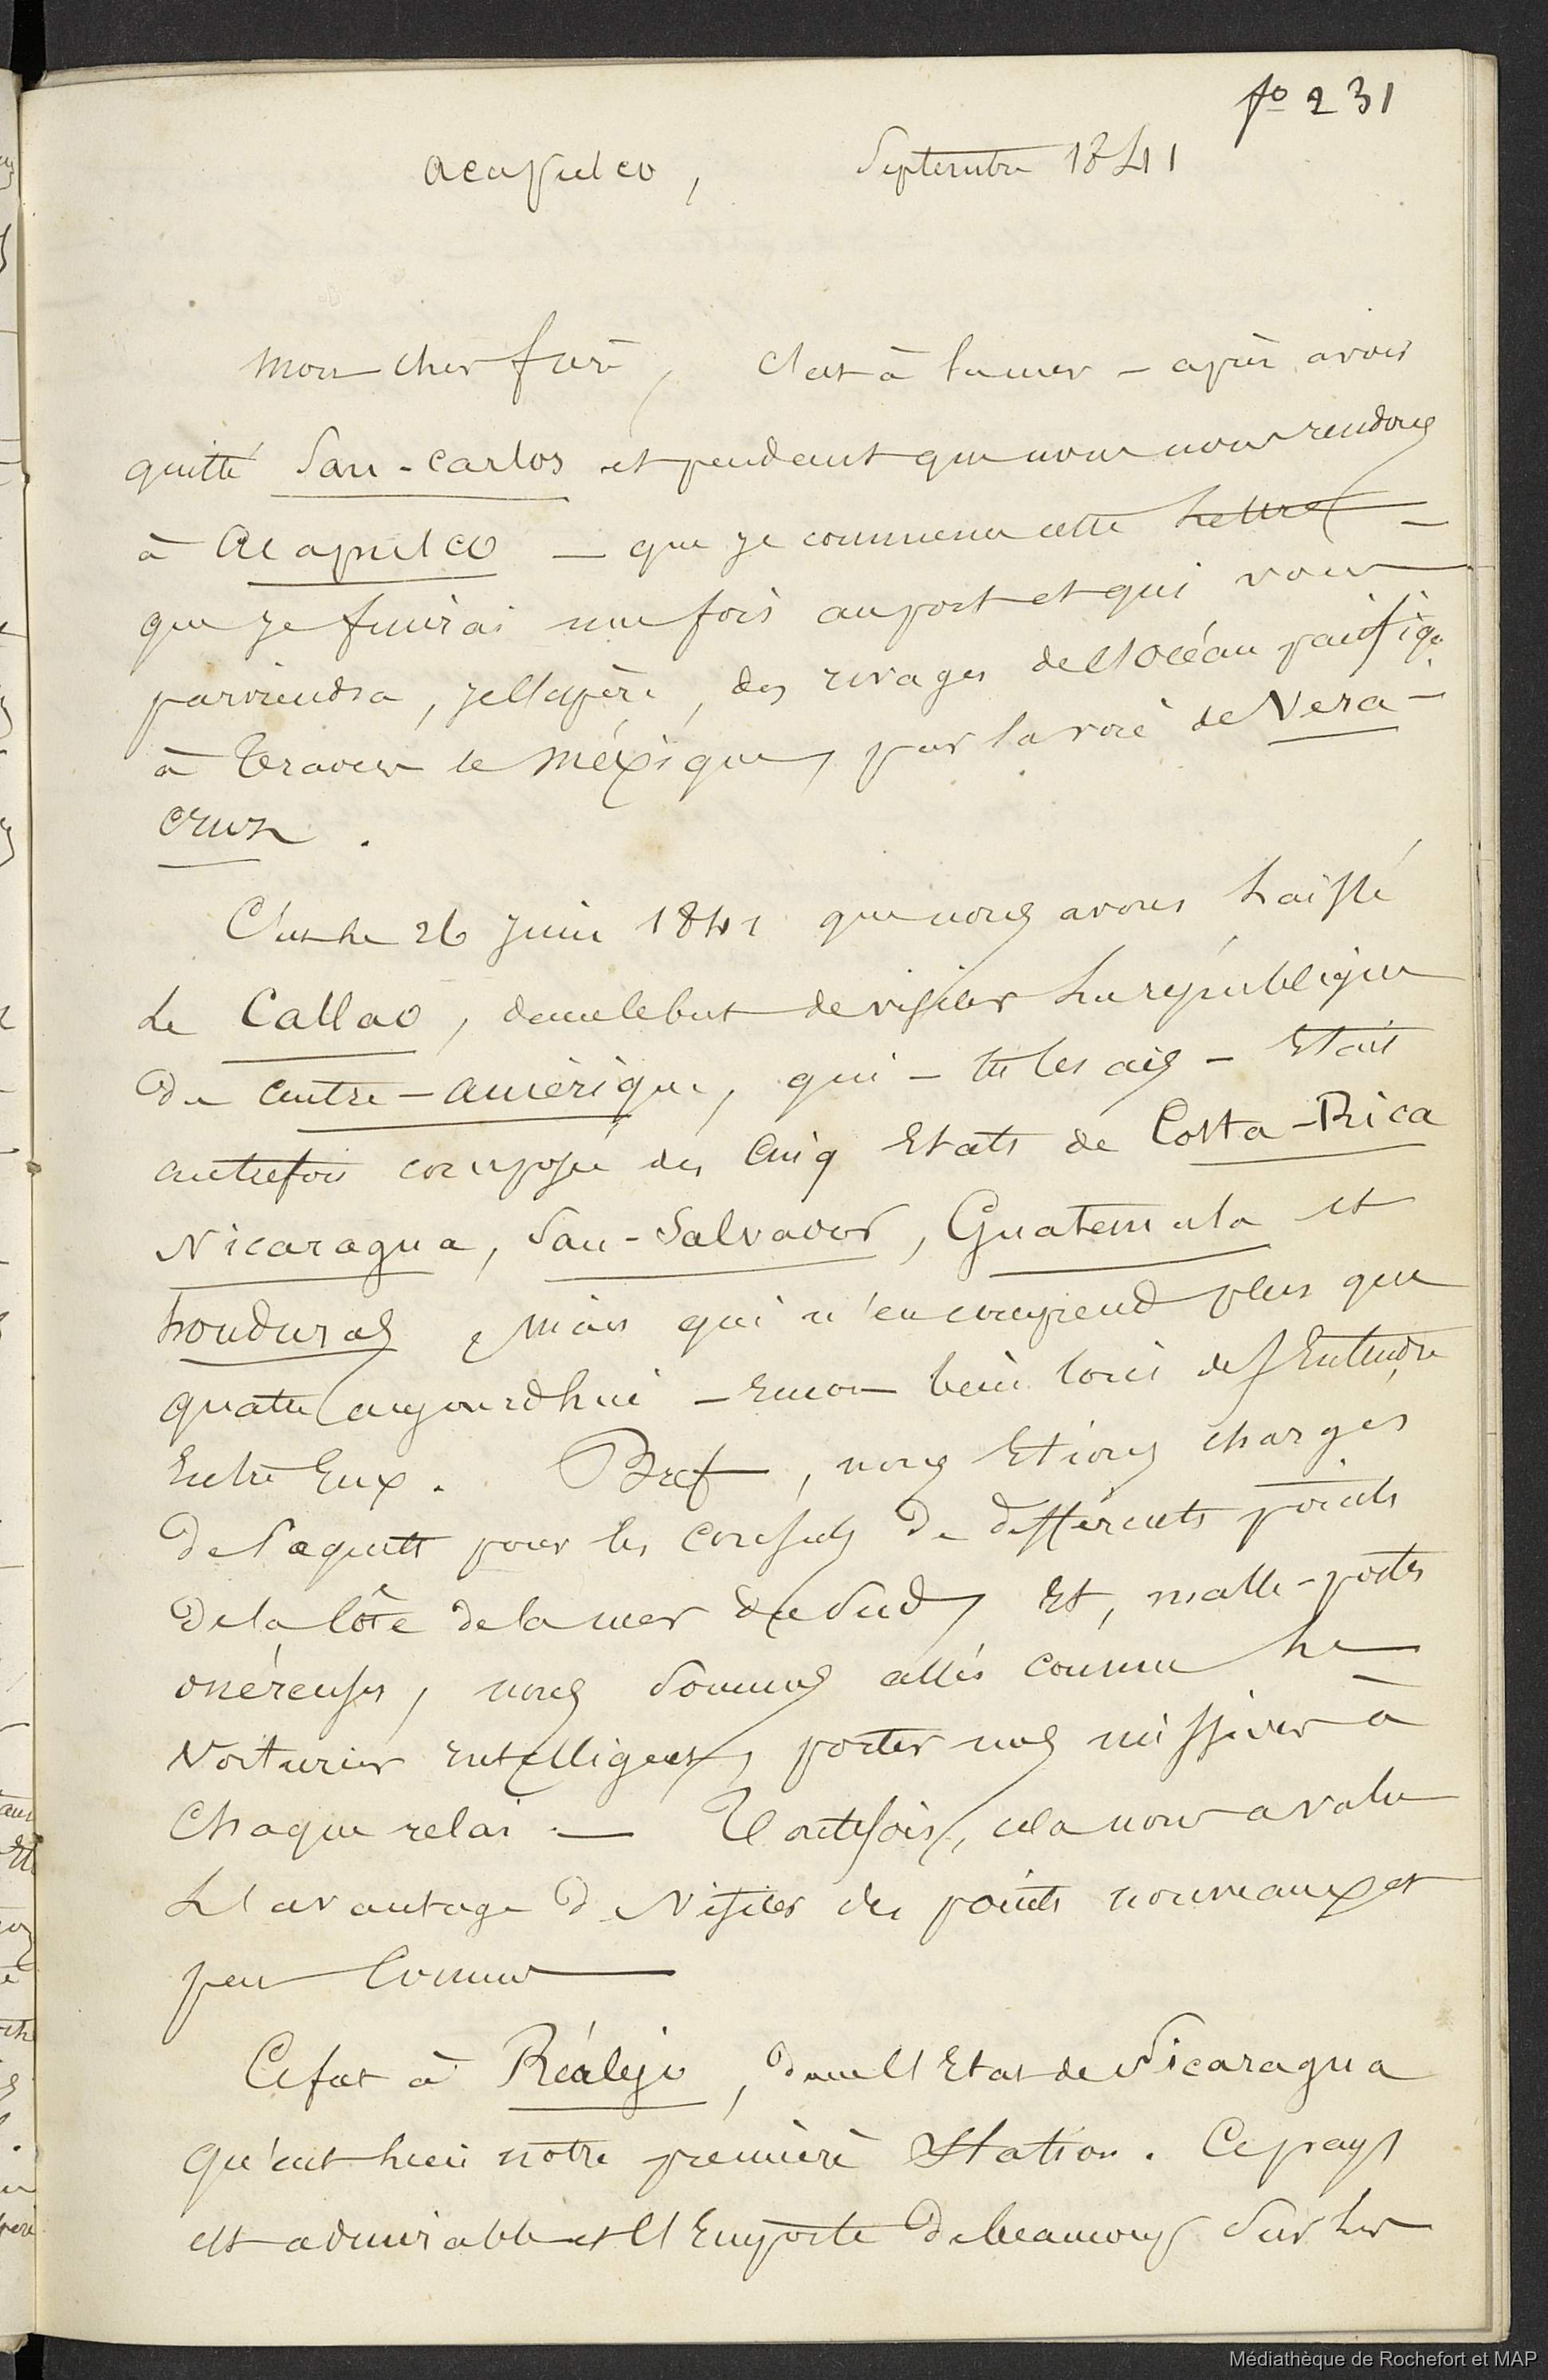 fo 231
Acapulco, Septembre 1841
Mon cher frère, C'est à la mer – après avoir
quitté San-Carlos et pendant que nous nous rendons
à Acapulco – que je commence cette Lettre –
que je finirai une fois au port et qui vous
parviendra, je l'espère, des rivages de l'Océan pacifiqe
à travers le Méxique, par la voie de Vera-
Cruz.
C'est le 26 juin 1841 que nous avons Laissé
Le Callao, dans le but de visiter La république
De Centre-Amérique, qui – tu les ais – Etait
autrefois composée des Cinq Etats de Costa-Rica
Nicaragua, San-Salvador, Guatemala et
honduras, mais qui n'en comprend plus que
quatre aujourdhui – Encore bien loin de s'Entendre
Entre Eux. Bref, nous Etions chargés
De paquets pour les Consuls De différents points
De la Côte de la mer du Sud, Et, malle-postes
onéreuses, nous Sommes allés comme Le
Voiturier intelligent, porter nos missives à
Chaque relai. – Toutefois, cela nous a valu
L'avantage De Visiter des points nouveaux et
peu Connus
Ce fut à Réalejo, dans l'Etat de Nicaragua
qu'eut lieu notre première Station. Ce pays
est admirable et l'Emporte De beaucoup Sur Les
Médiathèque de Rochefort et MAP